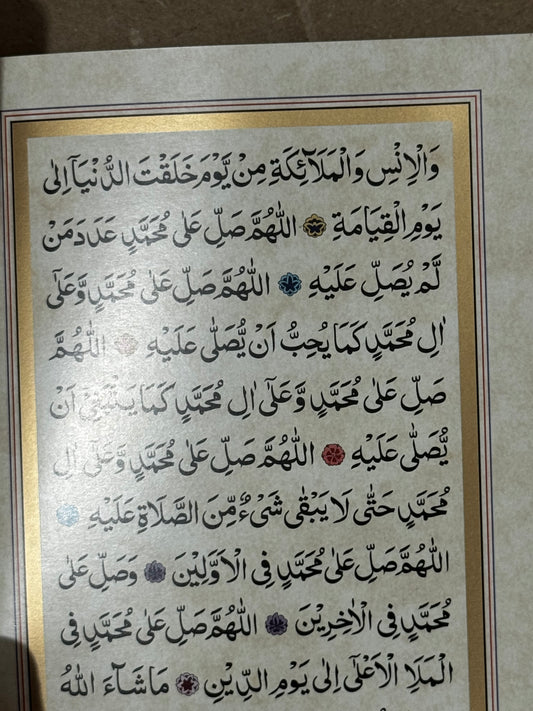 وَالْاِنْسِ وَالْمَلَآئِكَةِ مِنْ يَّوْمَ خَلَقْتَ الدُّنْيَآ اِلٰى
يَوْمِ الْقِيَامَةِ ۞ اَللّٰهُمَّ صَلِّ عَلٰى مُحَمَّدٍ عَدَدَ مَنْ
لَّمْ يُصَلِّ عَلَيْهِ ۞ اَللّٰهُمَّ صَلِّ عَلٰى مُحَمَّدٍ وَّعَلٰٓى
اٰلِ مُحَمَّدٍ كَمَا يُحِبُّ اَنْ يُّصَلّٰى عَلَيْهِ ۞ اَللّٰهُمَّ
صَلِّ عَلٰى مُحَمَّدٍ وَّعَلٰٓى اٰلِ مُحَمَّدٍ كَمَا يَنْۢبَغِىْ اَنْ
يُّصَلّٰى عَلَيْهِ ۞ اَللّٰهُمَّ صَلِّ عَلٰى مُحَمَّدٍ وَّعَلٰٓى اٰلِ
مُحَمَّدٍ حَتّٰى لَا يَبْقٰى شَىْءٌ مِّنَ الصَّلَاةِ عَلَيْهِ ۞
اَللّٰهُمَّ صَلِّ عَلٰى مُحَمَّدٍ فِى الْاَوَّلِيْنَ ۞ وَصَلِّ عَلٰى
مُحَمَّدٍ فِى الْاٰخِرِيْنَ ۞ اَللّٰهُمَّ صَلِّ عَلٰى مُحَمَّدٍ فِى
الْمَلَاِ الْاَعْلٰٓى اِلٰى يَوْمِ الدِّيْنِ ۞ مَاشَآءَ اللّٰهُ